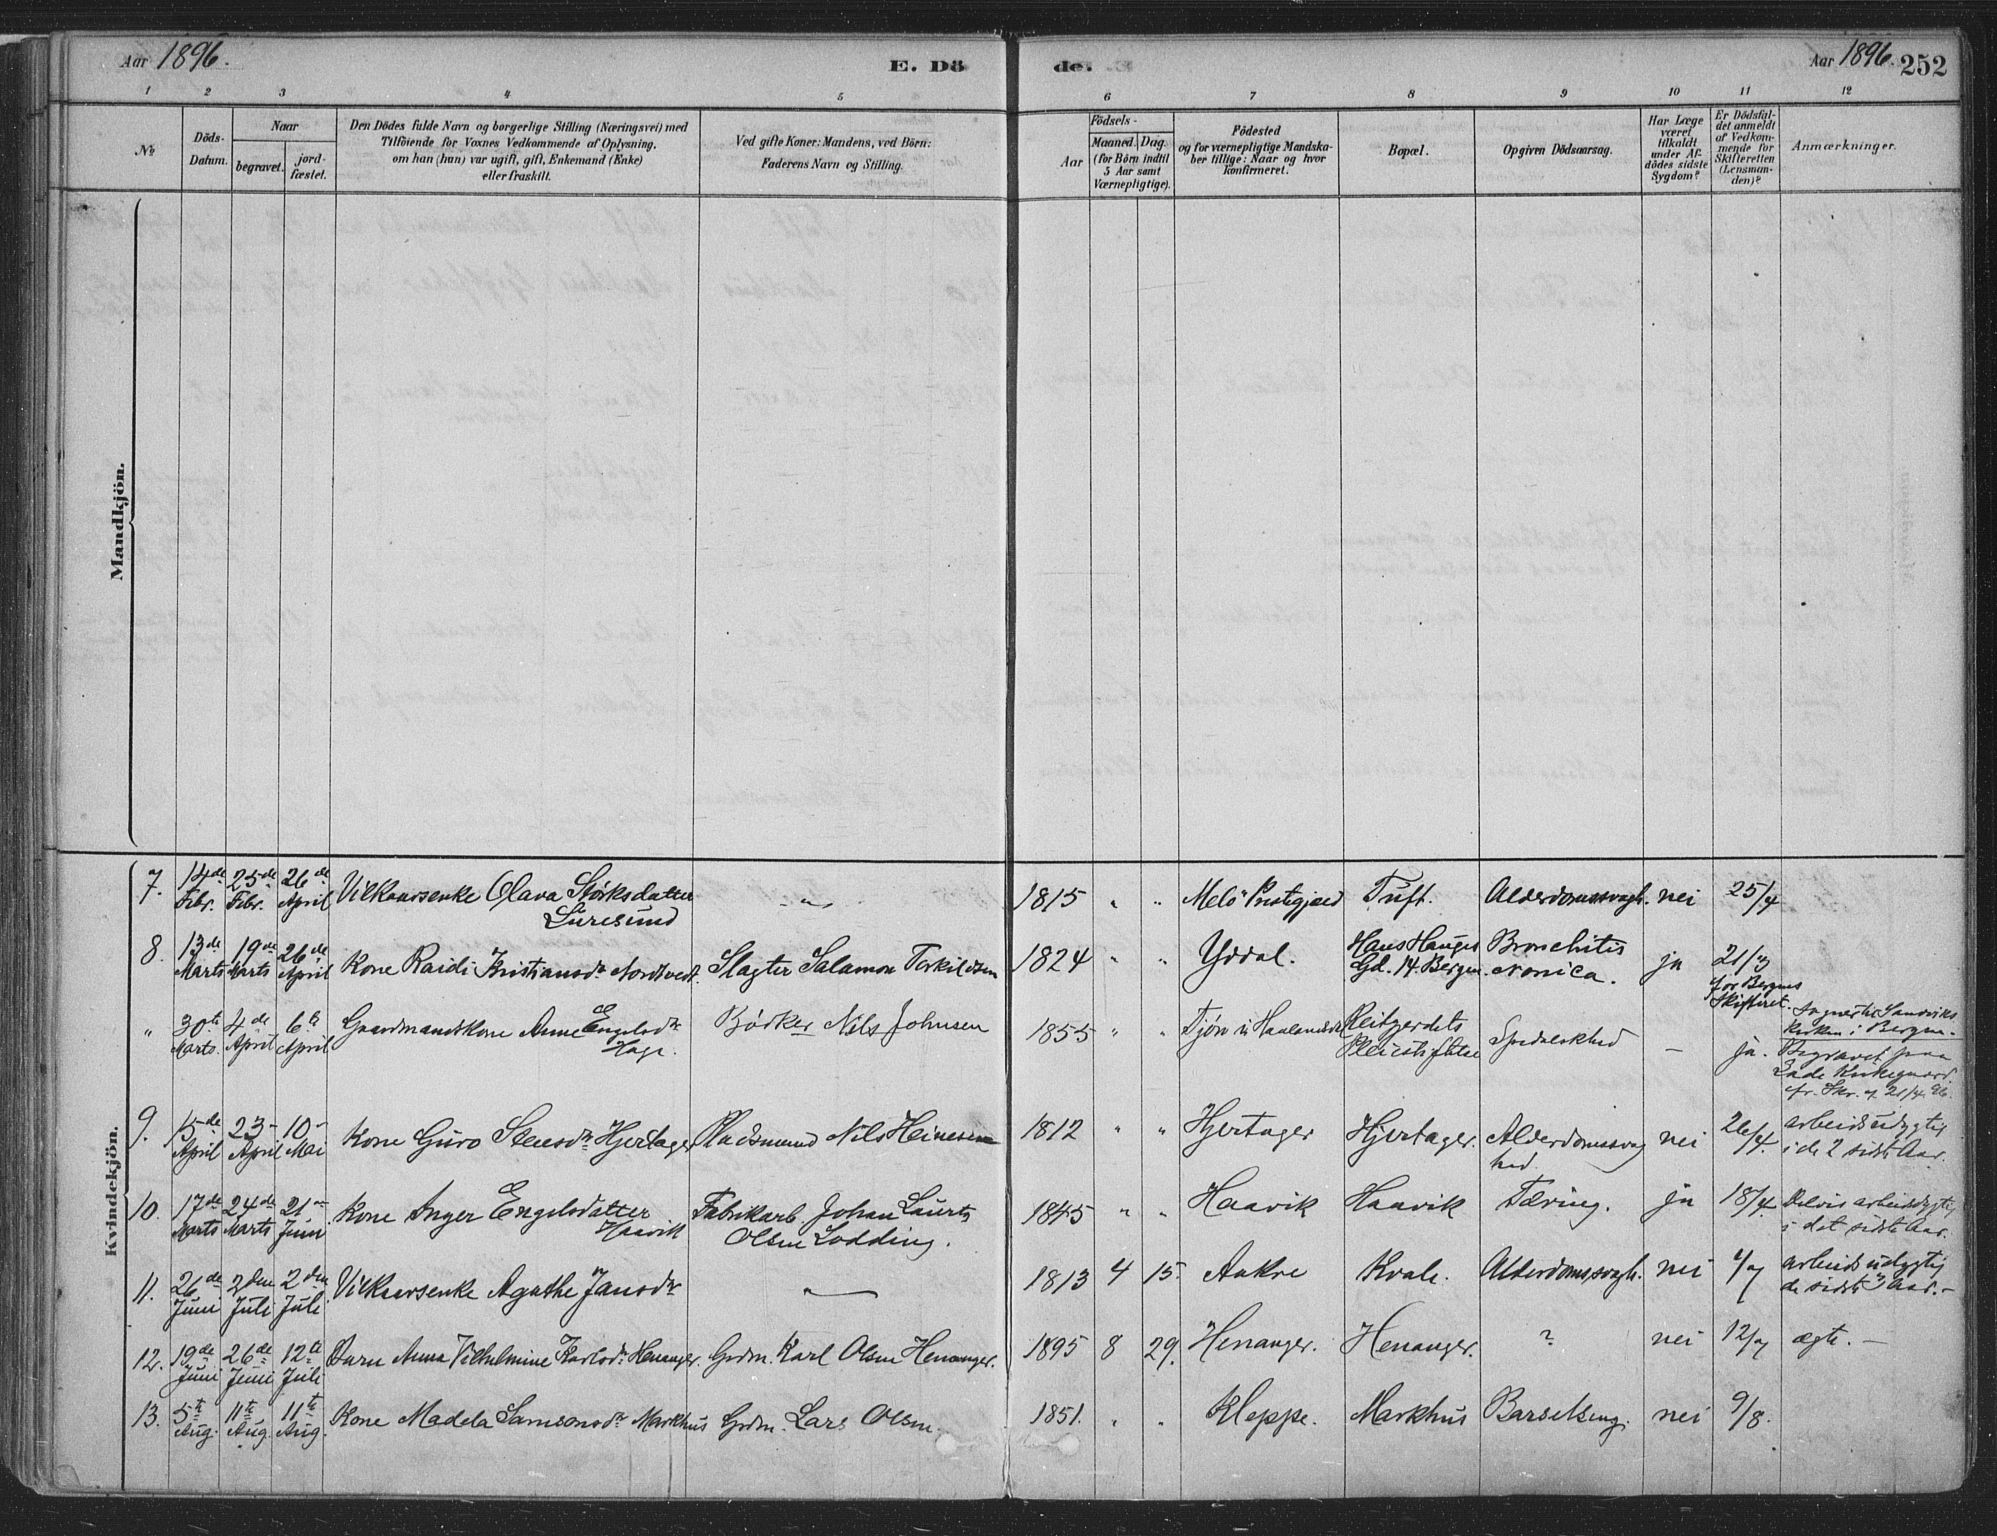 Aar 1896.
E. Dö
de.
Aar 1896. 252
1 2 3 4 5 6 7 8 9 10 11 12
№
Döds-
Datum.
Naar
begravet.
jord-
fæstet.
Den Dödes fulde Navn og borgerlige Stilling (Næringsvei) med
Tilföiende for Voxnes Vedkommende af Oplysning,
om han (hun) var ugift, gift, Enkemand (Enke)
eller fraskilt.
Ved gifte Koner: Mandens, ved Börn:
Faderens Navn og Stilling.
Födsels-
Aar
Maaned. Dag.
(for Börn indtil
5 Aar samt
Værnepligtige).
Födested
og for værnepligtige Mandska-
ber tillige: Naar og hvor
konfirmeret.
Bopæl.
Opgiven Dödsaarsag.
Har Læge
været
tilkaldt
under Af-
dödes sidste
Sygdom?
Er Dödsfal-
det anmeldt
af Vedkom-
mende for
Skifteretten
(Lensman-
den)?
Anmærkninger.
Mandkjön.
Kvindekjön.
7. 14de Febr. 25de Febr. 26de April Vilkaarsenke Olava Størksdatter Luresund " 1815 " " Melö Præstegjæld Tuft. Alderdomssvagh. nei 25/4
8. 13de Marts 19de Marts 26de April Kone Raidi Kristiansdr Nordtvedt. Slagter Salamon Torkildsen 1824 " " Yddal. Hans Hauges Gd. 14. Bergen. Bronchitis Cronica. ja 21/3 for Bergens Skifteret.
" 30te Marts. 4de April 6te April Gaardmandskone Anne Engelsdr Hage. Bödker Nils Johnsen 1855 " " Tjön i Haalandsdal Pleiestiftelse Spedalskhed – ja. Sandviks Kirken i Bergen. Begravet paa
9. 15de April 23 April 10 Mai Kone Guro Stensdr Hjertager Pladsmand Nils Heinesen 1812 " " Hjertager Hjertager. Alderdomssvag hed. nei 26/4. arbeidsudygtig i de 2 sidste Aar.
10. 17de Marts 24de Marts 21 Juni Kone Inger Engelsdatter Haavik Fabrikarb Johan Laurts Olsen Lodding. 1845 " " Haavik Haavik Tæring. ja 18/4. Delvis arbeidsdygtig i det sidste Aar.
11. 26de Juni 2den Juli 2den Juli. Vilkaarsenke Agathe Jansdr – 1813 4 15. Aakre Kvale. Alderdomssvagh. nei 4/7 arbeidsudygtig de sidste 3 Aar.–
12. 19de Juni 26de Juni 12te Juli Barn Anna Vilhelmine Karlsdr Henanger. Grdm. Karl Olsen Henanger. 1895 8 29. Henanger. Henanger. ? nei 12/7 ægte.–
13. 5te Aug. 11te Aug. 11te Aug. Kone Madela Samsonsdr Markhus Grdm. Lars Olsen. 1851. " " Kleppe. Markhus Barselseng. nei 9/8.